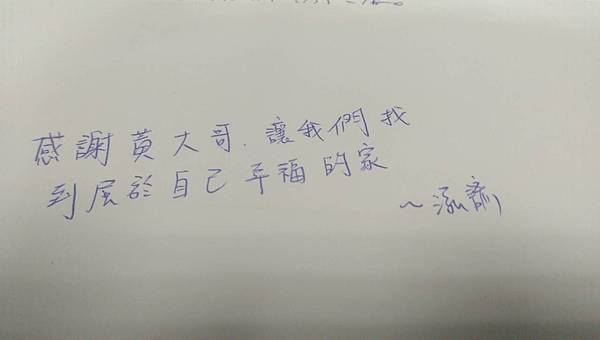 感謝黃大哥.讓我們找
到屬於自己幸福的家
～泓